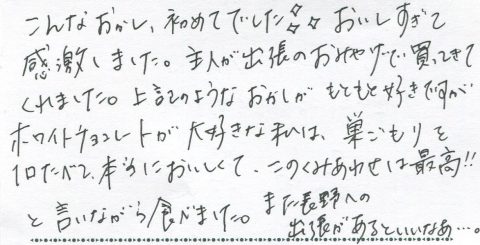 こんなおかし、初めてでした✨ おいしすぎて
感激しました。主人が出張のおみやげで買ってきて
くれました。上記のようなおかしが もともと好きですが
ホワイトチョコレートが大好きな私は、巣ごもりを
1口たべて、本当においしくて、このくみあわせは最高!!
と言いながら食べました。また長野への
出張があるといいなぁ…。